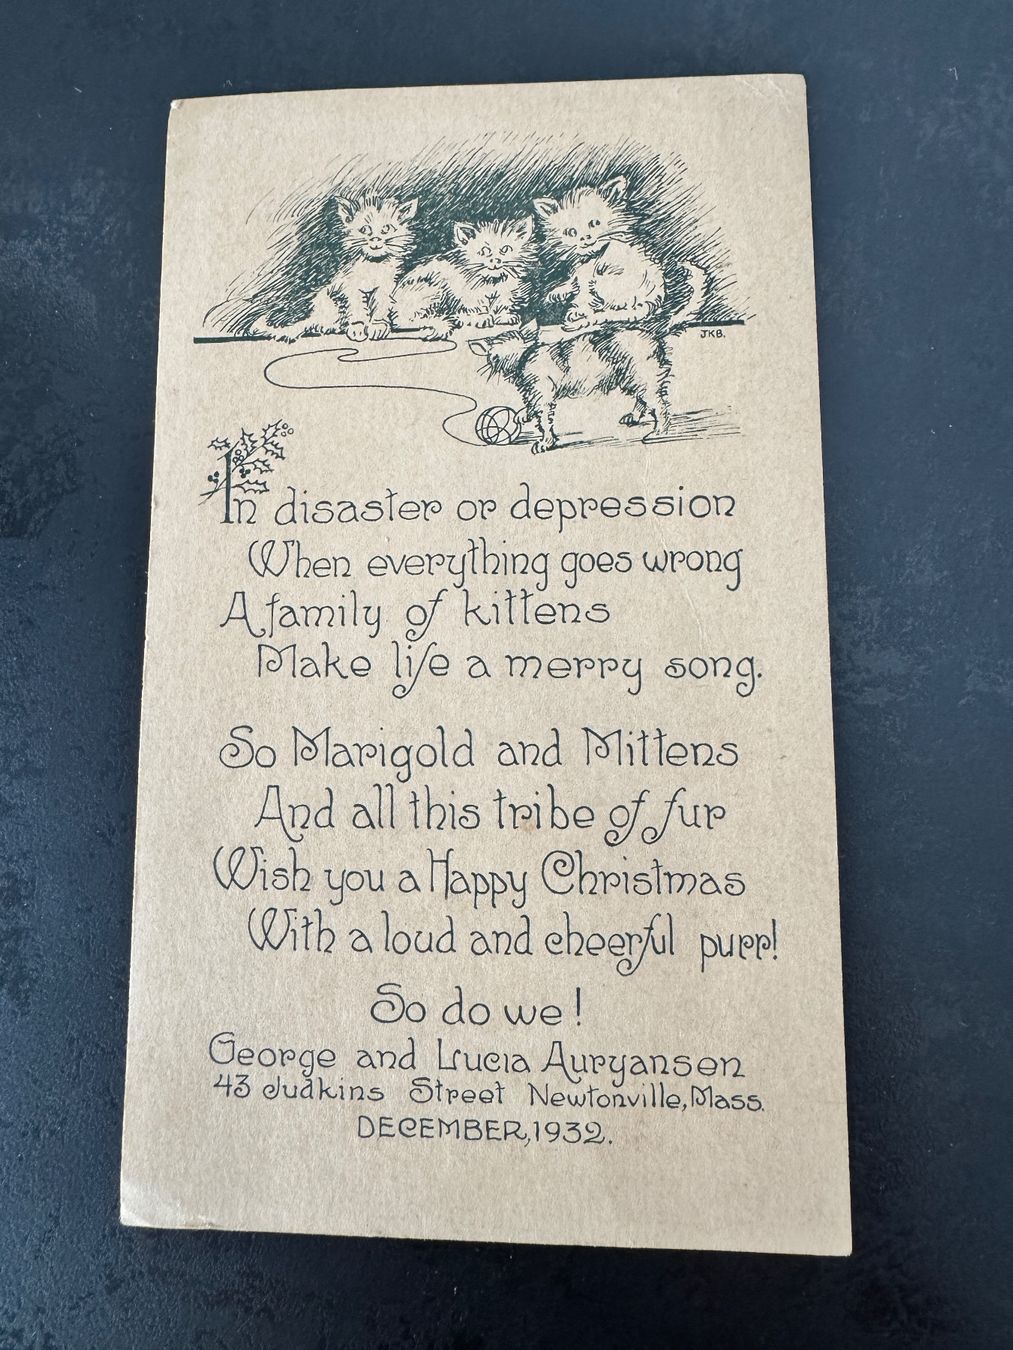 JKB.
In disaster or depression
When everything goes wrong
A family of kittens
Make life a merry song.
So Marigold and Mittens
And all this tribe of fur
Wish you a Happy Christmas
With a loud and cheerful purr!
So do we!
George and Lucia Auryansen
43 Judkins Street Newtonville, Mass.
DECEMBER, 1932.